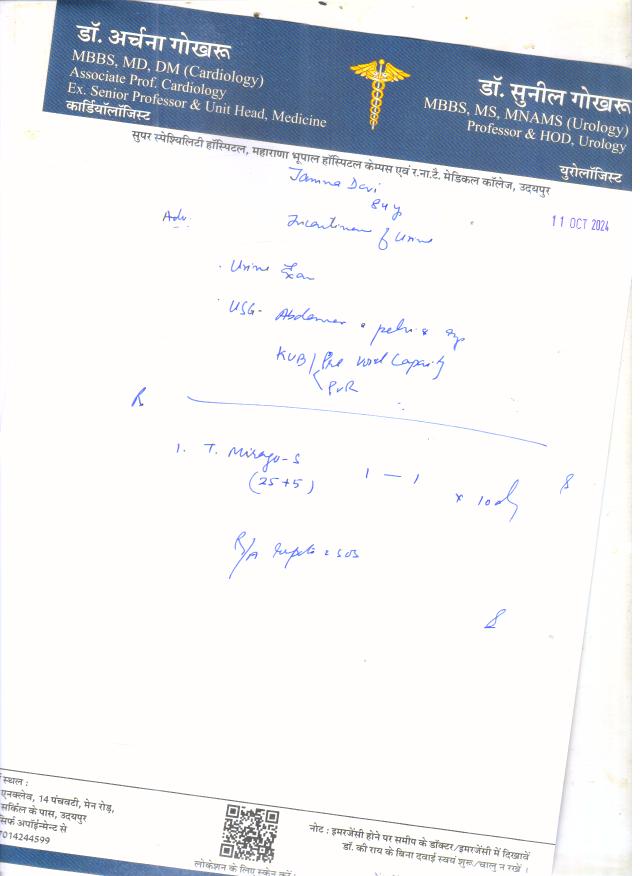 डॉ. अर्चना गोखरू
MBBS, MD, DM (Cardiology)
Associate Prof. Cardiology
Ex. Senior Professor & Unit Head, Medicine
कार्डियोलॉजिस्ट
डॉ. सुनील गोखरू
MBBS, MS, MNAMS (Urology)
Professor & HOD, Urology
यूरोलॉजिस्ट
सुपर स्पेश्यिलिटी हॉस्पिटल, महाराणा भूपाल हॉस्पिटल केम्पस एवं र.ना.टै. मेडिकल कॉलेज, उदयपुर
Jamna Devi
84y
11 OCT 2024
Adv.
Incontinence of Urine
Urine
USG- Abdomen & pelvis
KUB / Pre void Capacity
PVR
R
1. T. Mirago-S 1 — 1
(25+5) x 10 day
R/A SOS
स्थल :
एनक्लेव, 14 पंचवटी, मेन रोड़,
सर्किल के पास, उदयपुर
सिर्फ अपॉईन्मेन्ट से
7014244599
लोकेशन के लिए स्केन करें
नोट : इमरजेंसी होने पर समीप के डॉक्टर/इमरजेंसी में दिखावें
डॉ. की राय के बिना दवाई स्वयं शुरू/चालू न रखें ।